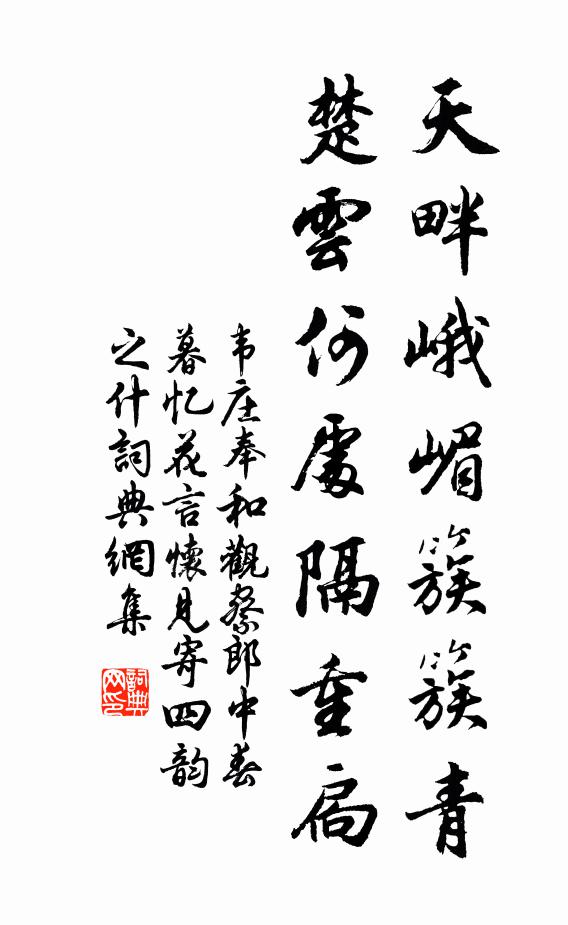 天畔峨嵋簇簇青
楚雲何處隔重扃
韦庄奉和觀察郎中春
暮忆花言懷見寄四韵
之什詞典網集
詞典
网印